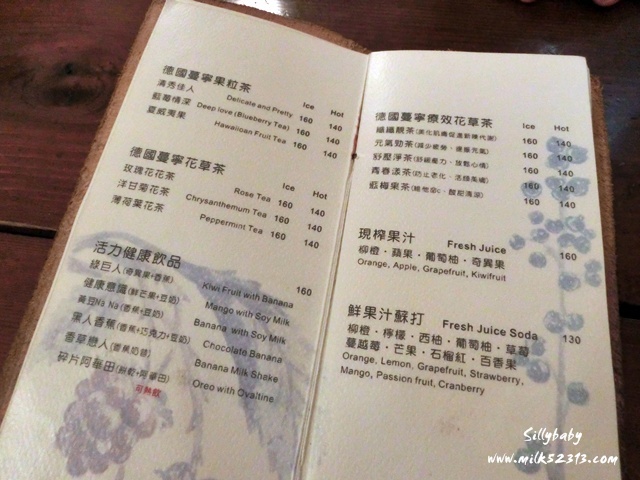 德國蔓寧果粒茶 Ice Hot
清秀佳人 Delicate and Pretty 160 140
藍莓情深 Deep love (Blueberry Tea) 160 140
夏威夷果 Hawaiian Fruit Tea 160 140
德國蔓寧花草茶 Ice Hot
玫瑰花花茶 Rose Tea 160 140
洋甘菊花茶 Chrysanthemum Tea 160 140
薄荷葉花茶 Peppermint Tea 160 140
活力健康飲品
綠巨人(奇異果+香蕉) Kiwi Fruit with Banana 160
健康意識(鮮芒果+豆奶) Mango with Soy Milk
黃豆Na Na(香蕉+豆奶) Banana with Soy Milk
黑人香蕉(香蕉+巧克力+豆奶) Chocolate Banana
香草戀人(香蕉奶昔) Banana Milk Shake
碎片阿華田(餅乾+阿華田) Oreo with Ovaltine
可熱飲
德國蔓寧療效花草茶 Ice Hot
纖纖靚茶 160 140
元氣勁茶(減少疲勞、連接元氣) 160 140
舒壓淨茶(紓緩壓力、放鬆心情) 160 140
青春漾茶(防止老化、活顏美膚) 160 140
莓梅果茶 160 140
現榨果汁 Fresh Juice 160
柳橙·蘋果·葡萄柚·奇異果
Orange, Apple, Grapefruit, Kiwifruit
鮮果汁蘇打 Fresh Juice Soda 130
柳橙·檸檬·西柚·葡萄柚·草莓
蔓越莓·芒果·石榴紅·百香果
Orange, Lemon, Grapefruit, Strawberry,
Mango, Passion fruit, Cranberry
Sillybaby
www.milk52313.com